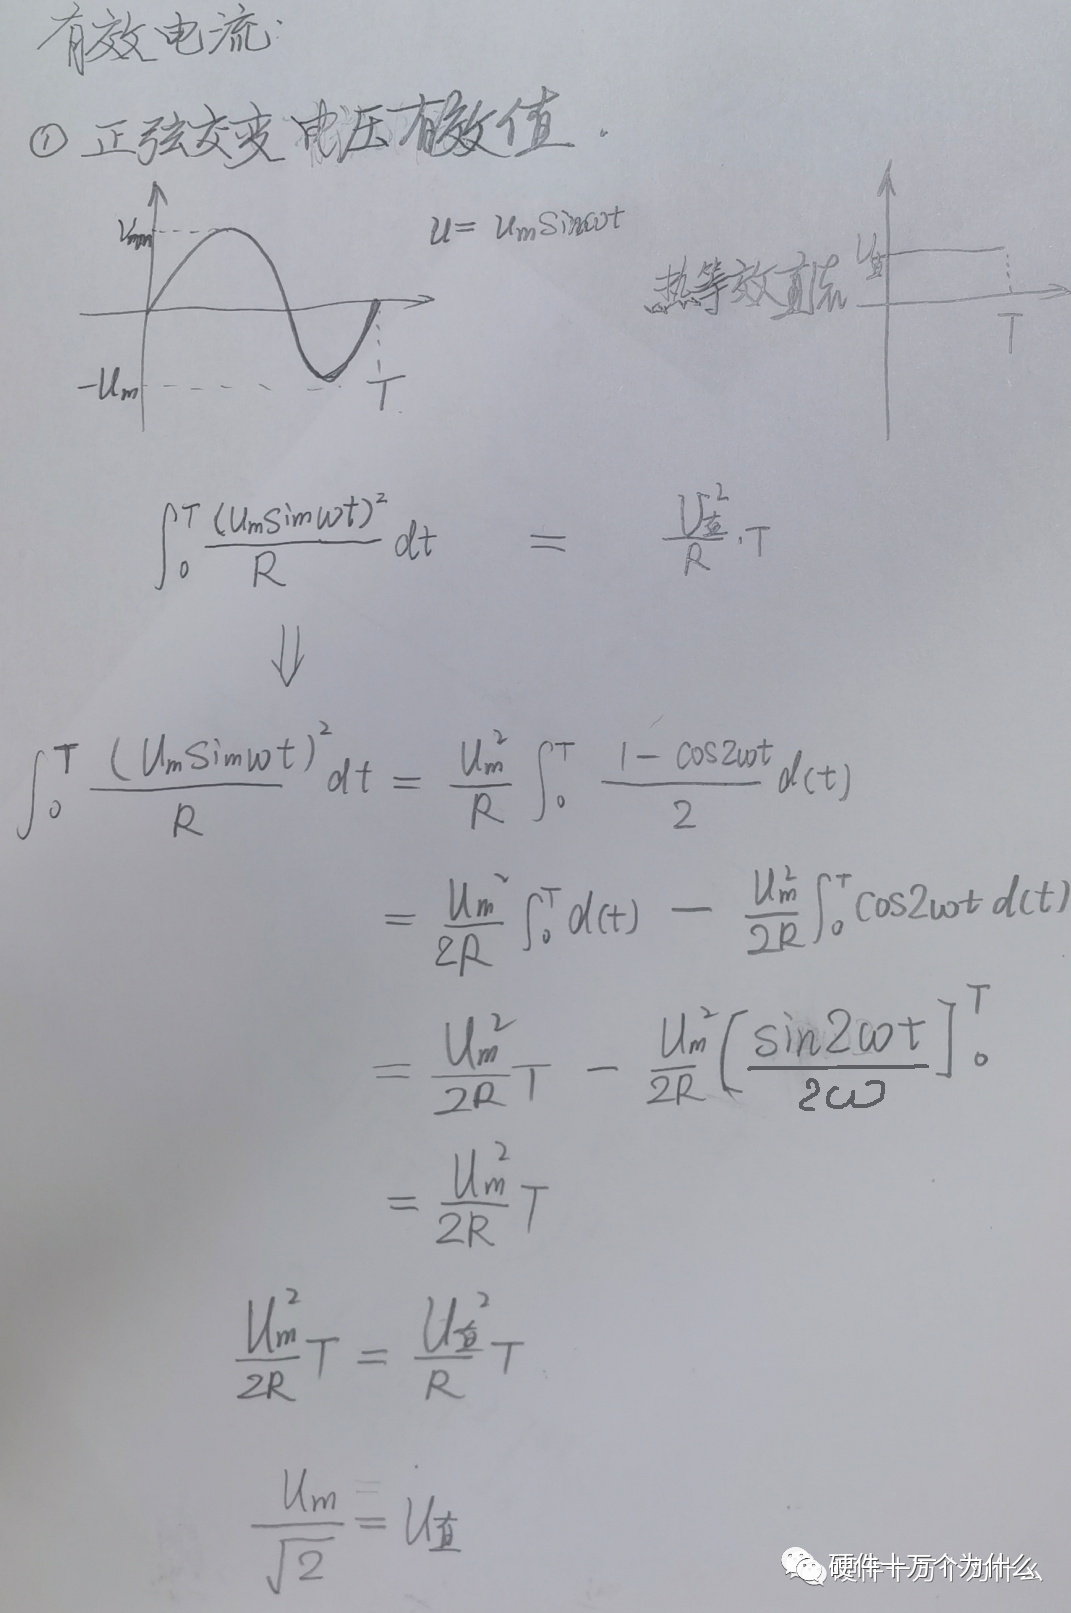 有效电流:
① 正弦交变电压有效值.
Um
u = Um sinωt
U直
热等效直流
T
-Um
T
∫₀ᵀ (Um sinωt)²/R dt = U直²/R · T
⇓
∫₀ᵀ (Um sinωt)²/R dt = Um²/R ∫₀ᵀ (1 - cos2ωt)/2 d(t)
= Um²/2R ∫₀ᵀ d(t) - Um²/2R ∫₀ᵀ cos2ωt d(t)
= Um²/2R T - Um²/2R [sin2ωt/2ω]₀ᵀ
= Um²/2R T
Um²/2R T = U直²/R T
Um/√2 = U直
硬件十万个为什么